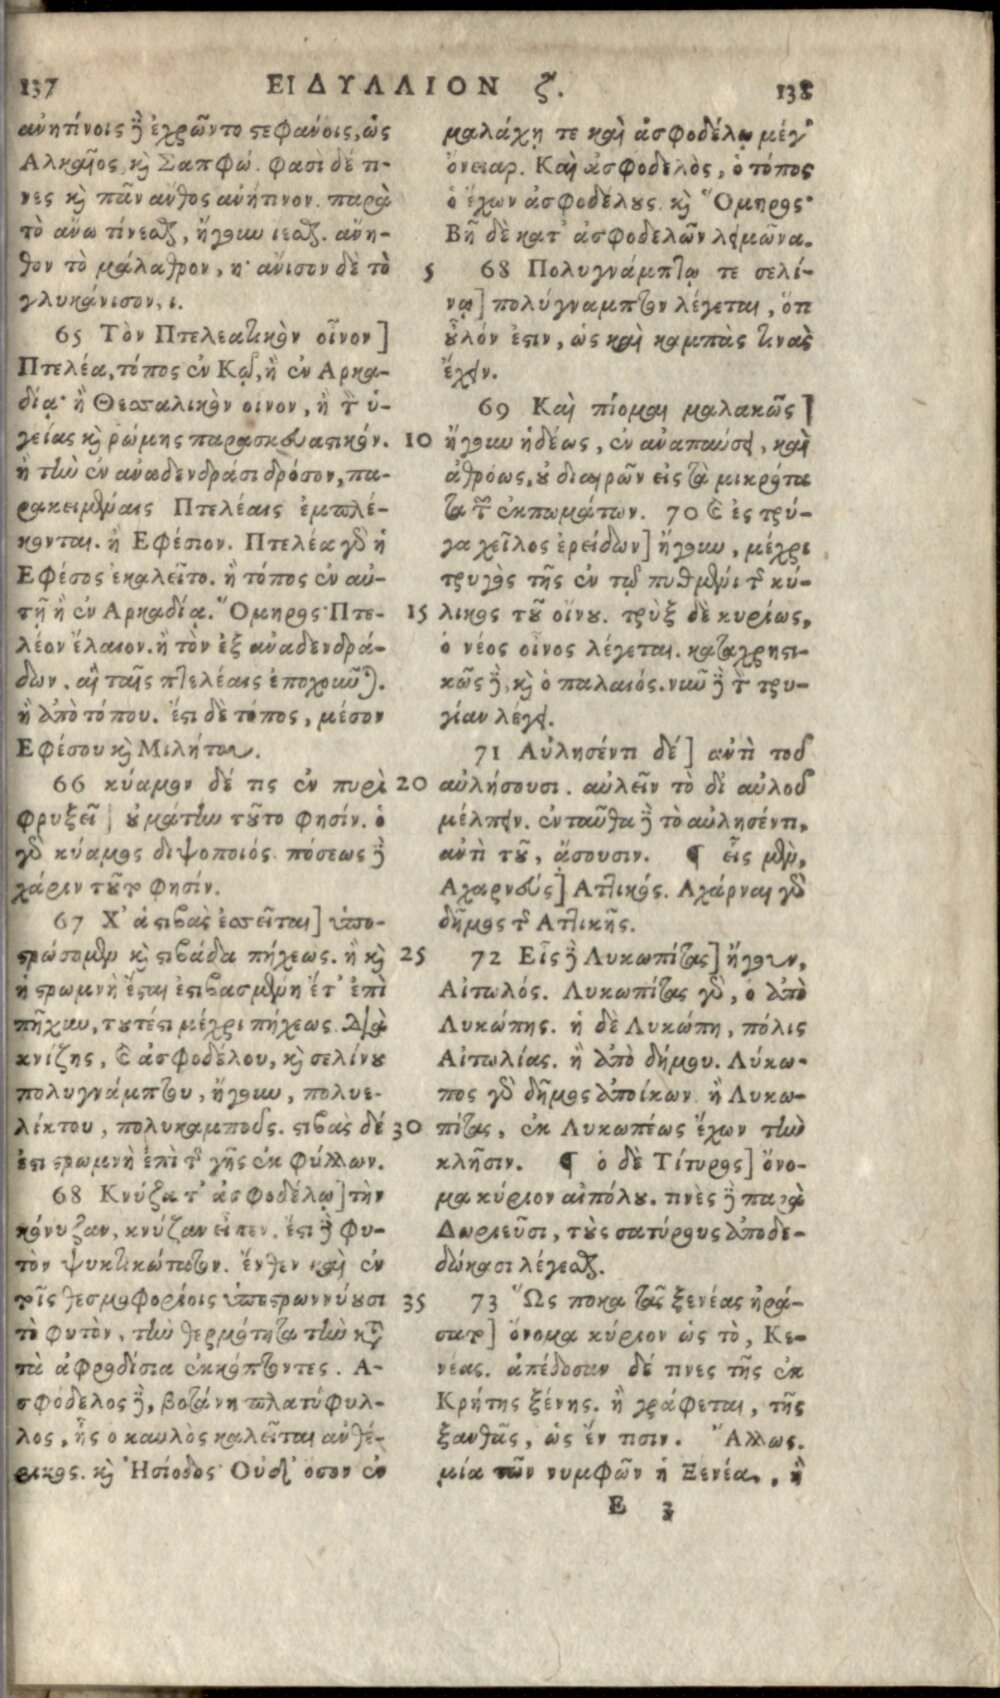 137
ΕΙΔΥΛΛΙΟΝ ζ.
138
ἀνητίνοις δὲ ἐχρῶντο στεφάνοις, ὡς
Αλκαῖος, καὶ Σαπφώ. φασὶ δέ τι-
νες καὶ πᾶν ἄνθος ἀνήτινον. παρὰ
τὸ ἄνω τίνεσθαι, ἤγουν ἵεσθαι. ἄνη-
θον τὸ μάλαθρον, η· ἄνισον δὲ τὸ
γλυκάνισον, ι.
65 Τὸν Πτελεατικὸν οἶνον]
Πτελέα, τόπος ἐν Κῷ, ἢ ἐν Αρκα-
δίᾳ· ἢ Θεσσαλικὸν οἶνον, ἢ τὸν ὑ-
γείας καὶ ῥώμης παρασκευαστικόν.
ἢ τὴν ἐν ἀναδενδράσι δρόσον, πα-
ρακειμέναις Πτελέαις ἐμπλέ-
κονται. ἢ Εφέσιον. Πτελέα γὰρ ἡ
Εφέσος ἐκαλεῖτο. ἢ τόπος ἐν αὐ-
τῇ ἢ ἐν Αρκαδίᾳ. Ὅμηρος· Πτε-
λέον ἕλαιον. ἢ τὸν ἐξ ἀναδενδρά-
δων. αἳ ταῖς πτελέαις ἐποχοῦνται.
ἢ ἀπὸ τόπου. ἔστι δὲ τόπος, μέσον
Εφέσου καὶ Μιλήτου.
66 κύαμον δέ τις ἐν πυρὶ
φρυξεῖ] οὐ μάτην τοῦτο φησίν. ὁ
γὰρ κύαμος διψοποιός. πόσεως δὲ
χάριν τοῦτο φησίν.
67 Χ' ἁ στιβὰς ἐσσεῖται] ὑπο-
στρώσομεν καὶ στιβάδα πήχεως. ἢ καὶ
ἡ στρωμνὴ ἔσται ἐστιβασμένη ἔτ' ἐπὶ
πῆχυν, τουτέστι μέχρι πήχεως διὰ
κνίζης, καὶ ἀσφοδέλου, καὶ σελίνου
πολυγνάμπτου, ἤγουν, πολυε-
λίκτου, πολυκαμποῦς. στιβὰς δέ
ἐστι στρωμνὴ ἐπὶ τῆς γῆς ἐκ φύλλων.
68 Κνύζᾳ τ' ἀσφοδέλῳ] τὴν
κόνυζαν, κνύζαν εἶπεν. ἔστι δὲ φυ-
τὸν ψυκτικώτατον. ἔνθεν καὶ ἐν
τοῖς θεσμοφορίοις ὑποστρωννύουσι
τὸ φυτὸν, τὴν θερμότητα τὴν κατὰ
τὰ ἀφροδίσια ἐκκόπτοντες. Α-
σφόδελος δὲ, βοτάνη πλατύφυλ-
λος, ἧς ὁ καυλὸς καλεῖται ἀνθέ-
ρικος. καὶ Ἡσίοδος· Οὐδ' ὅσον ἐν
μαλάχῃ τε καὶ ἀσφοδέλῳ μέγ'
ὄνειαρ. Καὶ ἀσφοδελὸς, ὁ τόπος
ὁ ἔχων ἀσφοδέλους. καὶ Ὅμηρος·
Βῆ δὲ κατ' ἀσφοδελῶν λειμῶνα.
5 68 Πολυγνάμπτῳ τε σελί-
νῳ] πολύγναμπτον λέγεται, ὅτι
οὖλόν ἐστιν, ὡς καὶ καμπὰς τινὰς
ἔχειν.
69 Καὶ πίομαι μαλακῶς]
10 ἤγουν ἡδέως, ἐν ἀναπαύσει, καὶ
ἀθρόως, οὐ διαιρῶν εἰς τὰ μικρότα
τα τῶν ἐκπωμάτων. 70 Καὶ ἐς τρύ-
γα χεῖλος ἐρείδων] ἤγουν, μέχρι
τρυγὸς τῆς ἐν τῷ πυθμένι τῆς κύ-
15 λικος τοῦ οἴνου. τρὺξ δὲ κυρίως,
ὁ νέος οἶνος λέγεται. καταχρηστι-
κῶς δὲ, καὶ ὁ παλαιός. νῦν δὲ τὴν τρυ-
γίαν λέγει.
71 Αὐλησέντι δέ] ἀντὶ τοῦ
20 αὐλήσουσι. αὐλεῖν τὸ δι' αὐλοῦ
μέλπειν. ἐνταῦθα δὲ τὸ αὐλησέντι,
ἀντὶ τοῦ, ᾄσουσιν. ¶ εἷς μὲν,
Αχαρνεύς] Αττικός. Αχάρναι γὰρ
δῆμος τῆς Αττικῆς.
25 72 Εἷς δὲ Λυκωπίτας] ἤγουν,
Αἰτωλός. Λυκωπίτας γὰρ, ὁ ἀπὸ
Λυκώπης. ἡ δὲ Λυκώπη, πόλις
Αἰτωλίας. ἢ ἀπὸ δήμου. Λύκω-
πος γὰρ δῆμος ἀποίκων ἢ Λυκω-
30 πίτας, ἐκ Λυκωπέως ἔχων τὴν
κλῆσιν. ¶ ὁ δὲ Τίτυρος] ὄνο-
μα κύριον αἰπόλου. τινὲς δὲ παρὰ
Δωριεῦσι, τοὺς σατύρους ἀποδε-
δώκασι λέγεσθαι.
35 73 Ὥς ποκα τᾶς ξενέας ἠρά-
σατο] ὄνομα κύριον ὡς τὸ, Κε-
νέας. ἀπέδοσαν δέ τινες τῆς ἐκ
Κρήτης ξένης. ἢ γράφεται, τῆς
ξανθᾶς, ὡς ἔν τισιν. Ἄλλως.
μία τῶν νυμφῶν ἡ Ξενέα, ἢ
E 3